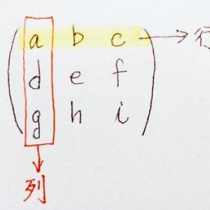 a b c → 行
d e f
g h i
列